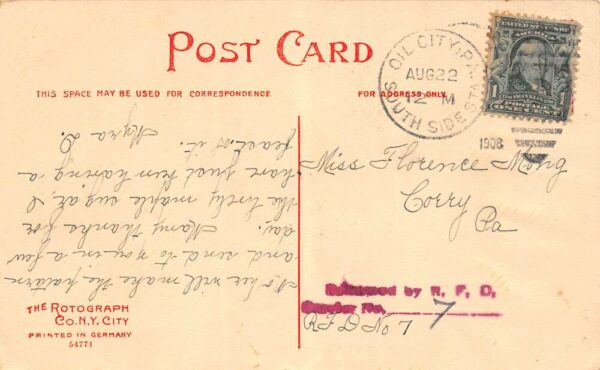 POST CARD
THIS SPACE MAY BE USED FOR CORRESPONDENCE
FOR ADDRESS ONLY
OIL CITY, PA. STA.
AUG 22
12 M
SOUTH SIDE
1908
UNITED STATES OF
AMERICA
FRANKLIN
1 1
POSTAGE
ONE CENT
Mother will make the pattern
and send to you in a few
days. Many thanks for
the lovely maple sugar, I
have just been having a
feast of it.
Myra D.
Miss Florence Mong
Corry
Pa
by R. F. D.
Carrier No. 7
R F D No 7
THE ROTOGRAPH
CO. N.Y. CITY
PRINTED IN GERMANY
54771